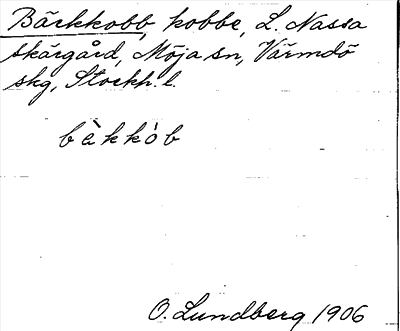 Bäckkobb, kobbe, L. Nassa
skärgård, Möja sn, Värmdö
skg, Stockh. l.
bè̀kkòb
O. Lundberg 1906